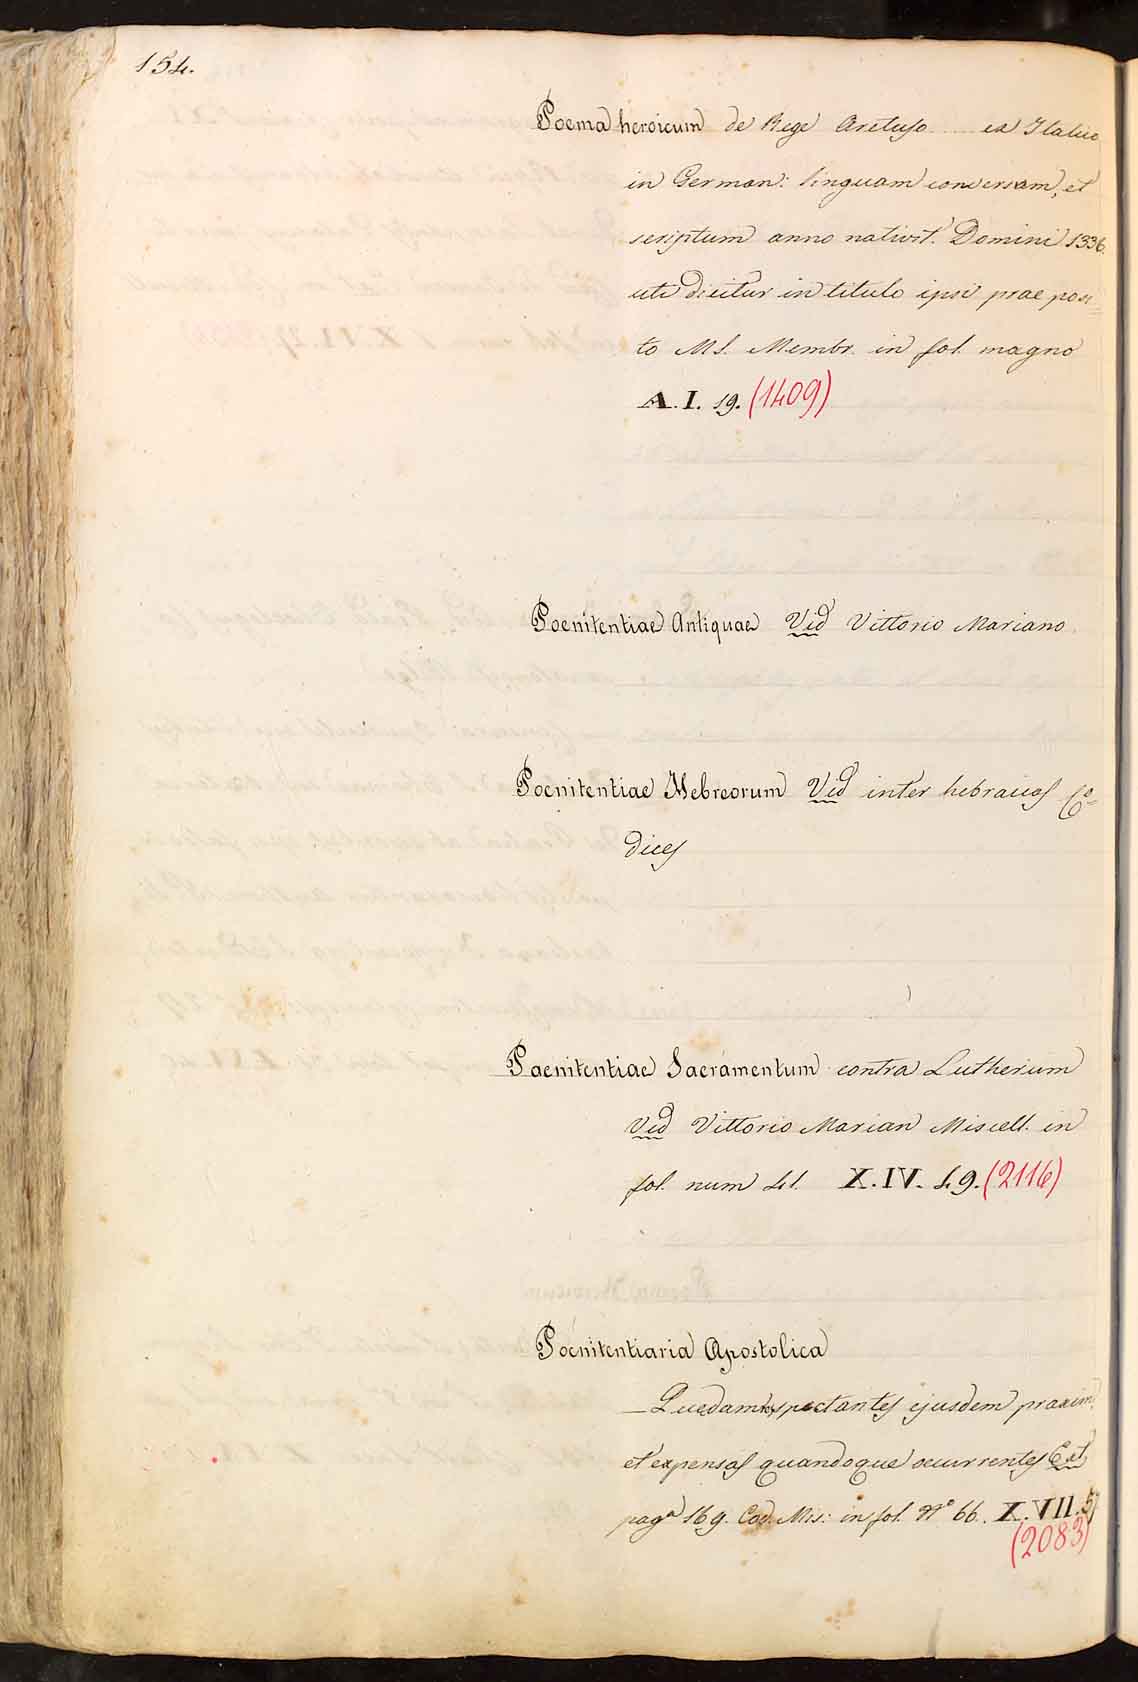 154.
Poema heroicum de Rege Aretuso ex Italico
in German: linguam conversam, et
scriptum anno nativit. Domini 1336.
uti dicitur in titulo ipsi prae posi=
to MS. Membr. in fol. magno
A. I. 19. (1409)
Poenitentiae Antiquae Vid Vittorio Mariano.
Poenitentiae Hebreorum Vid inter hebraicos Co=
dices
Paenitentiae Sacramentum contra Lutherum
Vid Vittorio Marian Miscell. in
fol. num 41. X. IV. 49. (2116)
Poenitentiaria Apostolica
Quedam spectantes ejusdem praxim
et expensas quandoque occurrentes Ext
pagª 169. Cod. Mis: in fol. Nº 66. X. VII. 57
(2083)